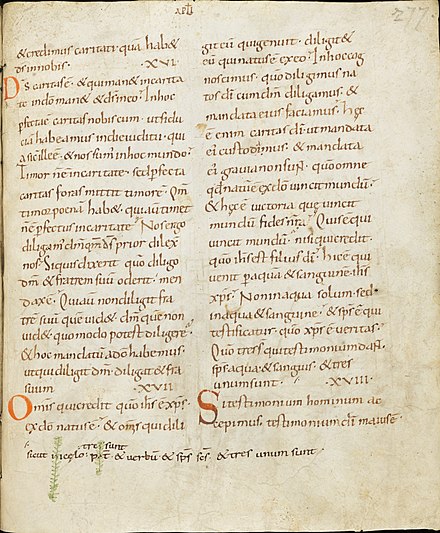 APLI
277.
& credimus caritati quā hab&
ds in nobis. XVI.
Ds caritas ē · & qui man& in carita
te in dō man& & ds in eo · In hoc
perfecta ē caritas nobiscum · ut fidu
ciā habeamus in die iudicii · qui
a sic ille ē · & nos sum' in hoc mundo ·
Timor nōn ē in caritate · sed perfecta
caritas foras mittit timorē · Qm̄
timor poenā hab& · qui aū tim&
non ē perfectus in caritate · Nos ergo
diligam' dm̄ qm̄ ds prior dilex
nos · Si quis dixerit quō diligo
dm̄ & fratrem suū oderit · men
dax ē · Qui aū non diligit fra
trē suū quē uid& · dm̄ quē non
uid& · quomodo potest diligere
& hoc mandatū ab dō habemus ·
ut qui diligit dm̄ · diligat & fra
suum XVII
Omnis qui credit quō ihs ē xps ·
ex dō natus ē · & omnis qui dili
git eū qui genuit · diligit &
eū qui natus ē ex eo · In hoc cog
noscimus quō diligimus na
tos dī cum dm̄ diligamus · &
mandata eius faciamus · Hęc
ē enim caritas dī · ut mandata
eī custodimus · & mandata
eī grauia non sunt · quō omne
qd natū ē ex dō uincit mundū ·
& hęc ē uictoria que uincit
mundū fides nr̄a · Quis ē qui
uincit mundū · nisi qui credit ·
quō ihs est filius dī · Hic ē qui
uenit per aquā & sanguinē · ihs
xps · Non in aqua solum · sed
in aqua & sanguine · & sps ē qui
testificatur · quō xps ē ueritas ·
Quō tres qui testimoniū dant
sps · aqua · & sanguis · & tres
unum sunt · XVIII
Si testimonium hominum ac
cepimus · testimonium dī maius ē ·
tres sunt
sicut in cęlo · pat & uerbū & sps scs & tres unum sunt